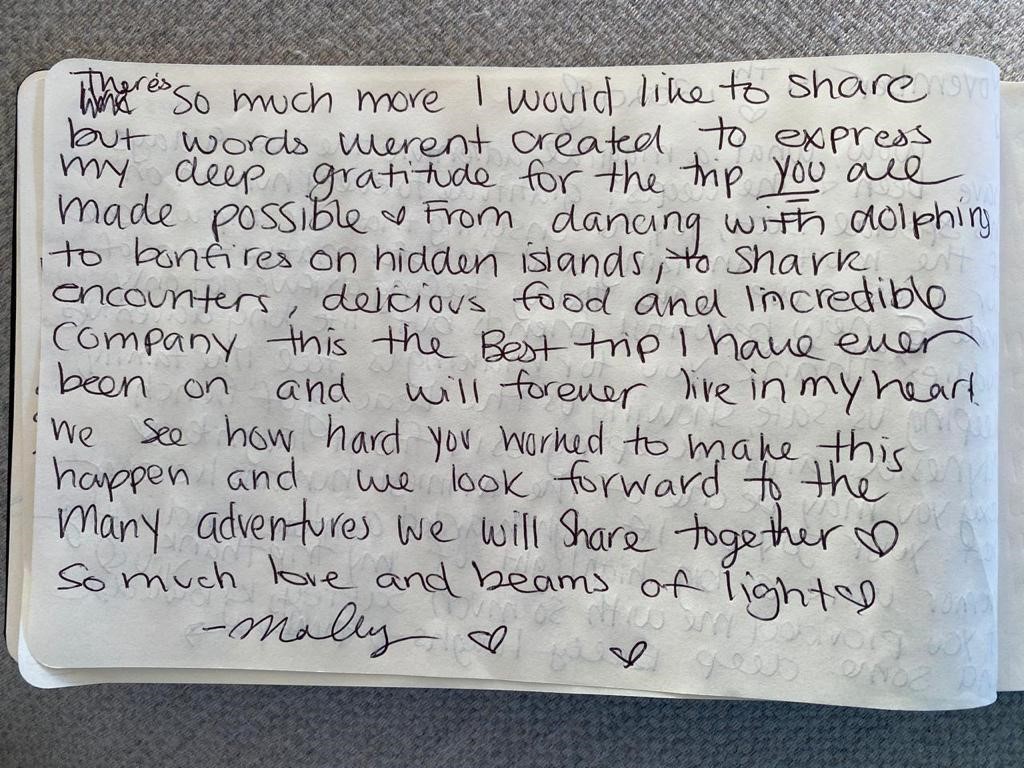 There's so much more I would like to share
but words werent created to express
my deep gratitude for the trip you all
made possible ♡ From dancing with dolphins
to bonfires on hidden islands, to shark
encounters, delicious food and incredible
company this the Best trip I have ever
been on and will forever live in my heart.
We see how hard you worked to make this
happen and we look forward to the
many adventures we will share together ♡
So much love and beams of light ♡
- Maley ♡ ♡